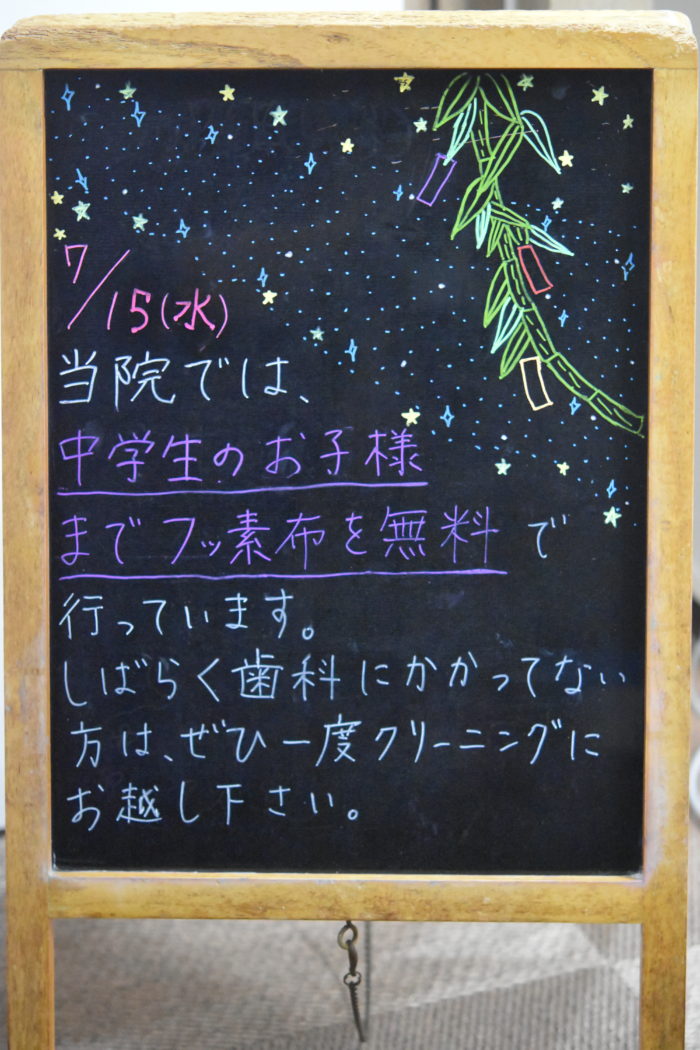 7/15(水)
当院では、
中学生のお子様
までフッ素布を無料で
行っています。
しばらく歯科にかかってない
方は、ぜひ一度クリーニングに
お越し下さい。